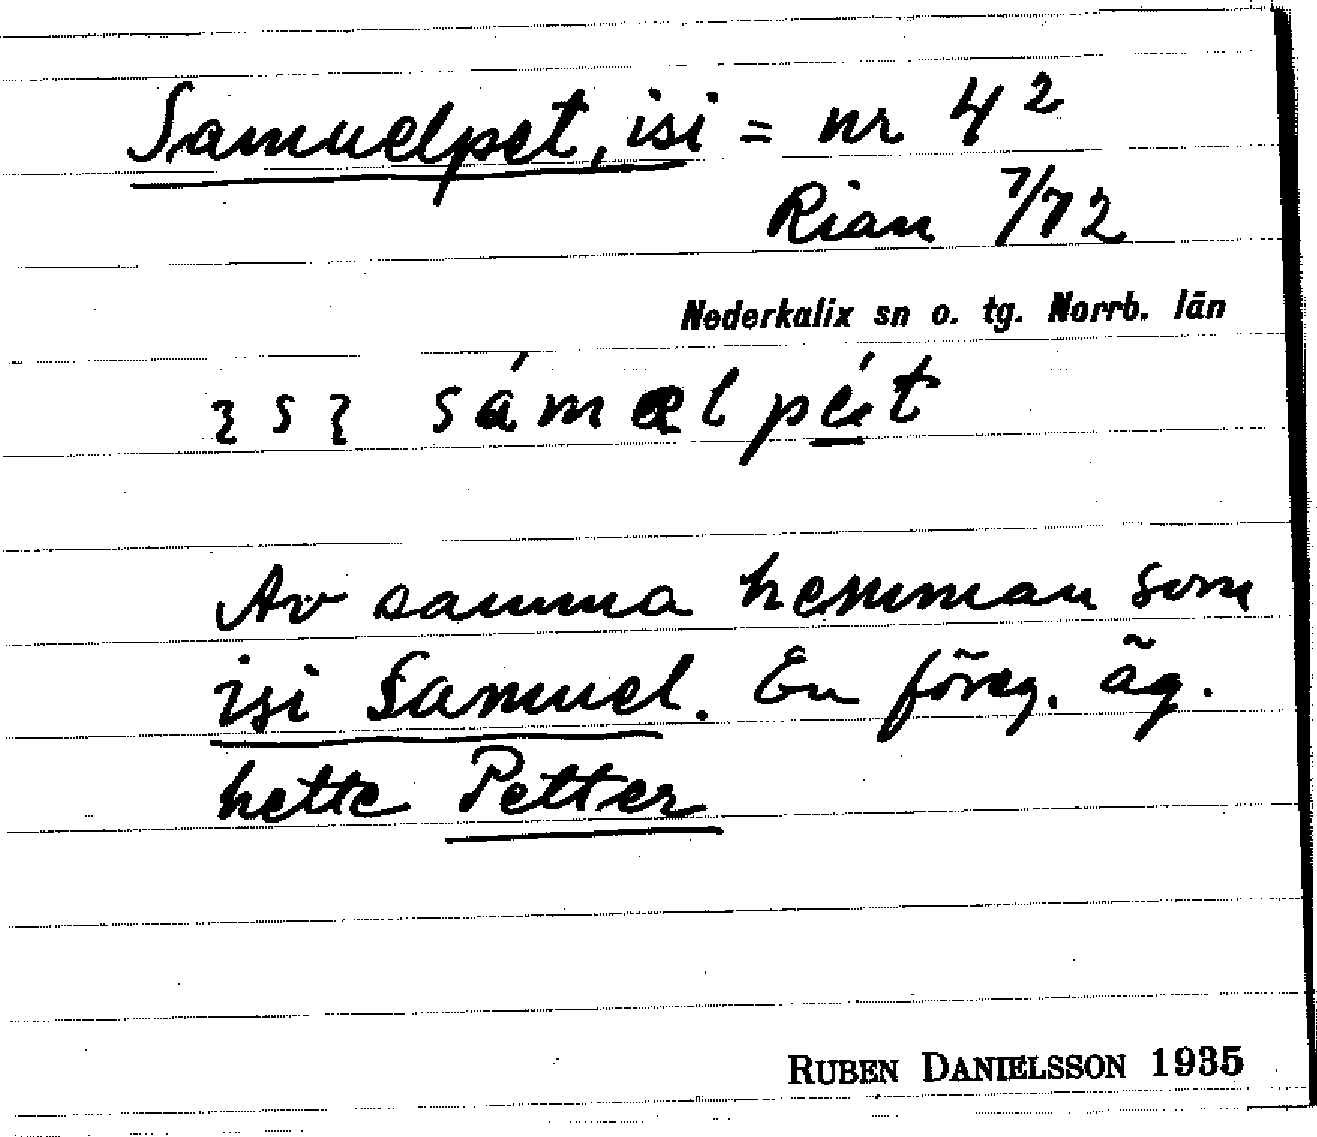 Samuelpet, isi = nr 4²
Rian 7/72
Nederkalix sn o. tg. Norrb. län
ꝛsꝛ sámælpéit
Av samma hemman som
isi Samuel. En föreg. äg.
hette Petter
RUBEN DANIELSSON 1935